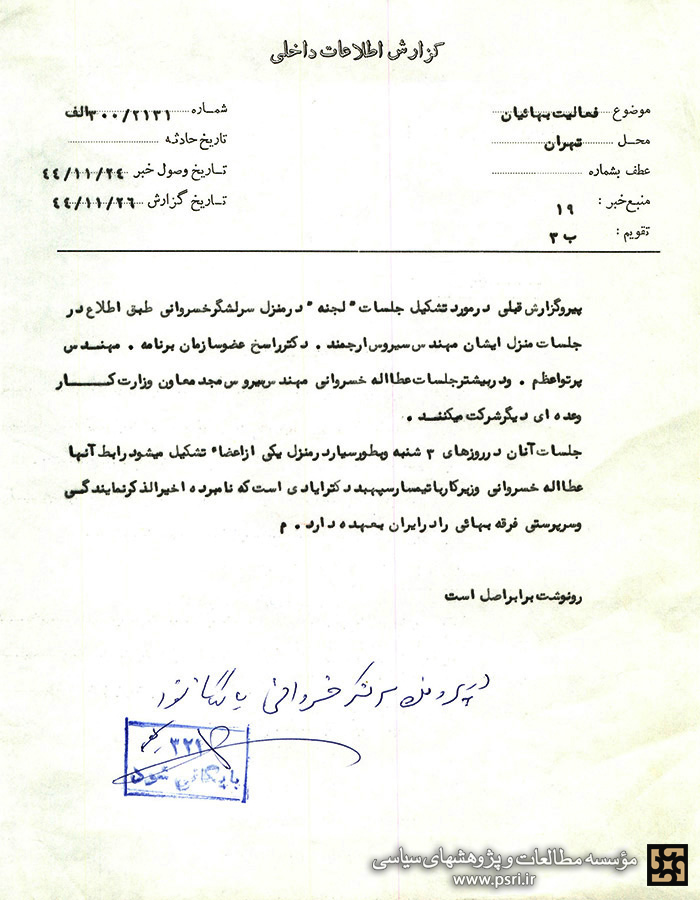 گزارش اطلاعات داخلی
موضوع فعالیت بهائیان
محل تهران
عطف بشماره
منبع خبر : ۱۹
تقویم : ب ۳
شماره ۳۰۰/۲۱۳۱ الف
تاریخ حادثه
تاریخ وصول خبر ۴۴/۱۱/۲۴
تاریخ گزارش ۴۴/۱۱/۲۶
پیروگزارش قبلی درمورد تشکیل جلسات " لجنه " درمنزل سرلشگرخسروانی طبق اطلاع در
جلسات منزل ایشان مهندس سیروس ارجمند . دکترراسخ عضوسازمان برنامه . مهندس
پرتواعظم . ودربیشترجلسات عطااله خسروانی مهندس سیروس مجد معاون وزارت کار
وعده ای دیگرشرکت میکنند .
جلسات آنان درروزهای ۳ شنبه وبطورسیاردرمنزل یکی ازاعضاء تشکیل میشودرابط آنها
عطااله خسروانی وزیرکارباتیمسارسپهبد دکترایادی است که نامبرده اخیرالذکرنمایندگی
وسرپرستی فرقه بهائی رادرایران بعهده دارد . م
رونوشت برابراصل است
در پرونده سرلشکر خسروانی بایگانی شود
۳۲۱
بایگانی شود
مؤسسه مطالعات و پژوهشهای سیاسی
www.psri.ir